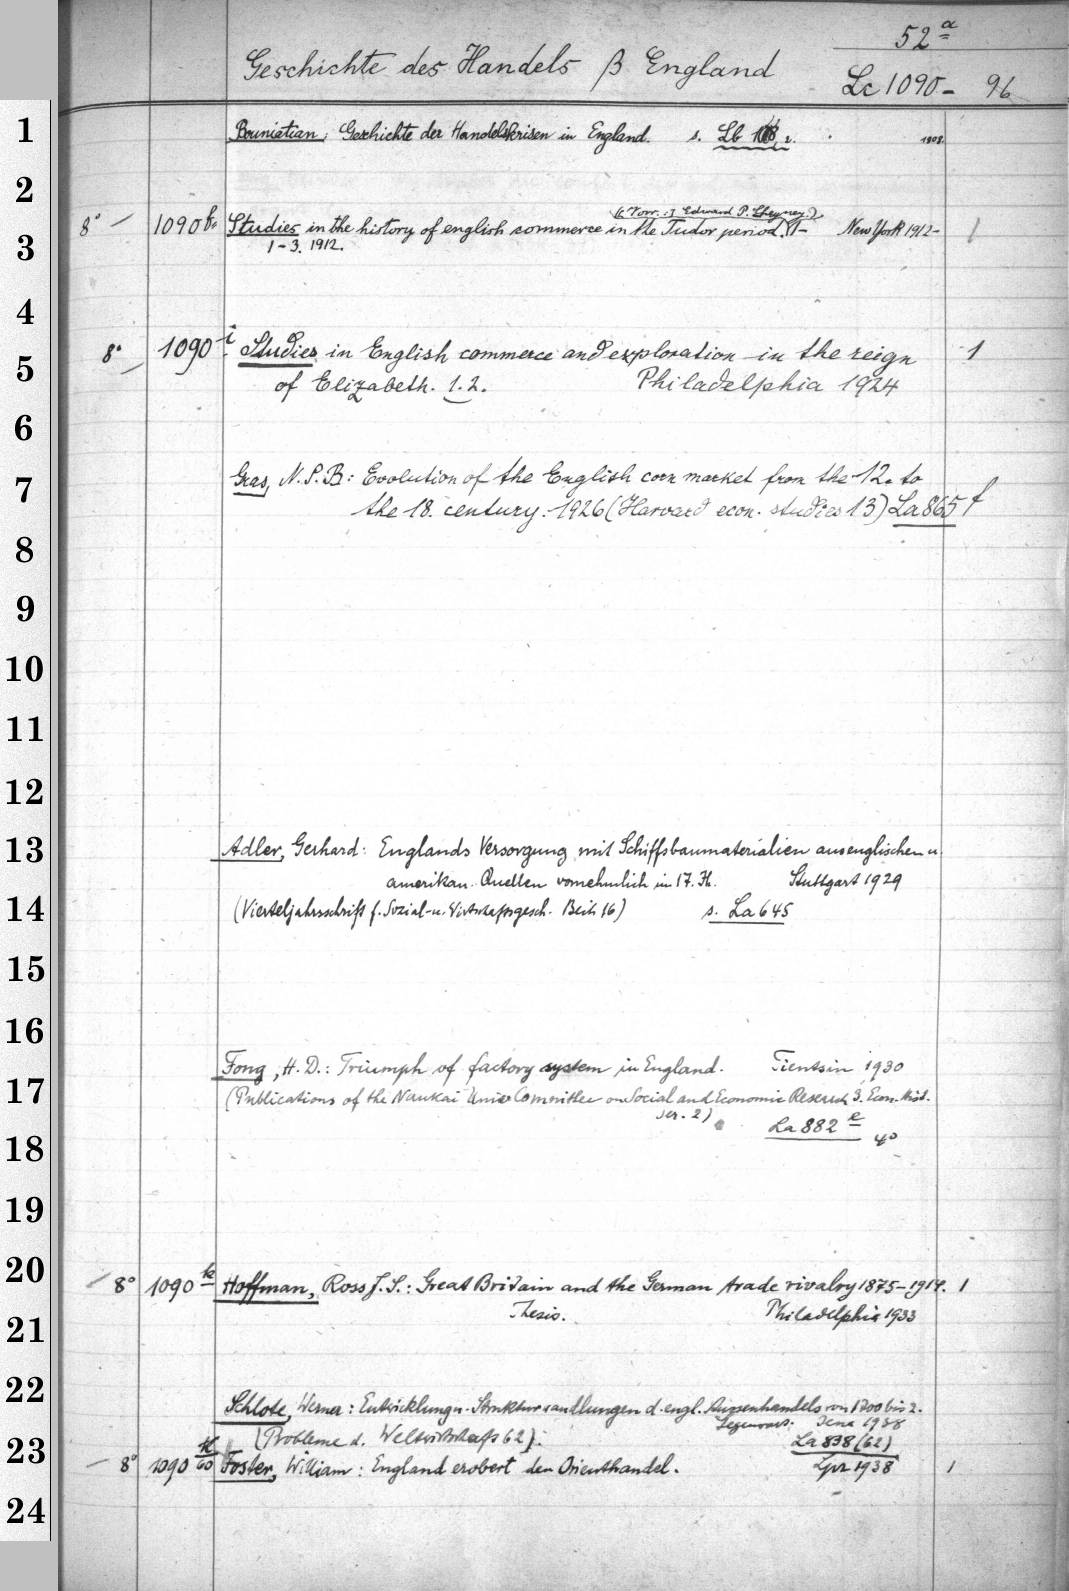 52 a
Geschichte des Handels β England
Lc 1090- 96
1
Bouniatian, Geschichte der Handelskrisen in England. s. Lb 1908.
2
(c Vorr. v. Edward P. Cheyney.)
8° 1090 h. Studies in the history of english commerce in the Tudor period. 1- New York 1912- 1
3
1-3. 1912.
4
8° 1090 i Studies in English commerce and exploration in the reign 1
5
of Elizabeth. 1.2. Philadelphia 1924
6
7
Gras, N.S.B.: Evolution of the English corn market from the 12. to
the 18. century. 1926 (Harvard econ. studies 13) La 865 f
8
9
10
11
12
13
Adler, Gerhard: Englands Versorgung mit Schiffsbaumaterialien aus englischen u.
amerikan. Quellen vornehmlich im 17. Jh. Stuttgart 1929
14
(Vierteljahrsschrift f. Sozial- u. Wirtschaftsgesch. Beih 16) s. La 645
15
16
Fong, H. D.: Triumph of factory system in England. Tientsin 1930
17
(Publications of the Nankai Univ. Committee on Social and Economic Research 3. Econ. Hist.
ser. 2)
La 882 e 4°
18
19
20
8° 1090 k Hoffman, Ross J. S.: Great Britain and the German trade rivalry 1875-1914. 1
21
Thesis. Philadelphia 1933
22
Schlote, Werner: Entwicklung u. Strukturwandlungen d. engl. Aussenhandels von 1700 bis z.
Gegenwart. Jena 1938
(Probleme d. Weltwirtschaft 62). La 838 (62)
23
8° 1090 k/60 Foster, William: England erobert den Orienthandel. Lpz 1938 1
24